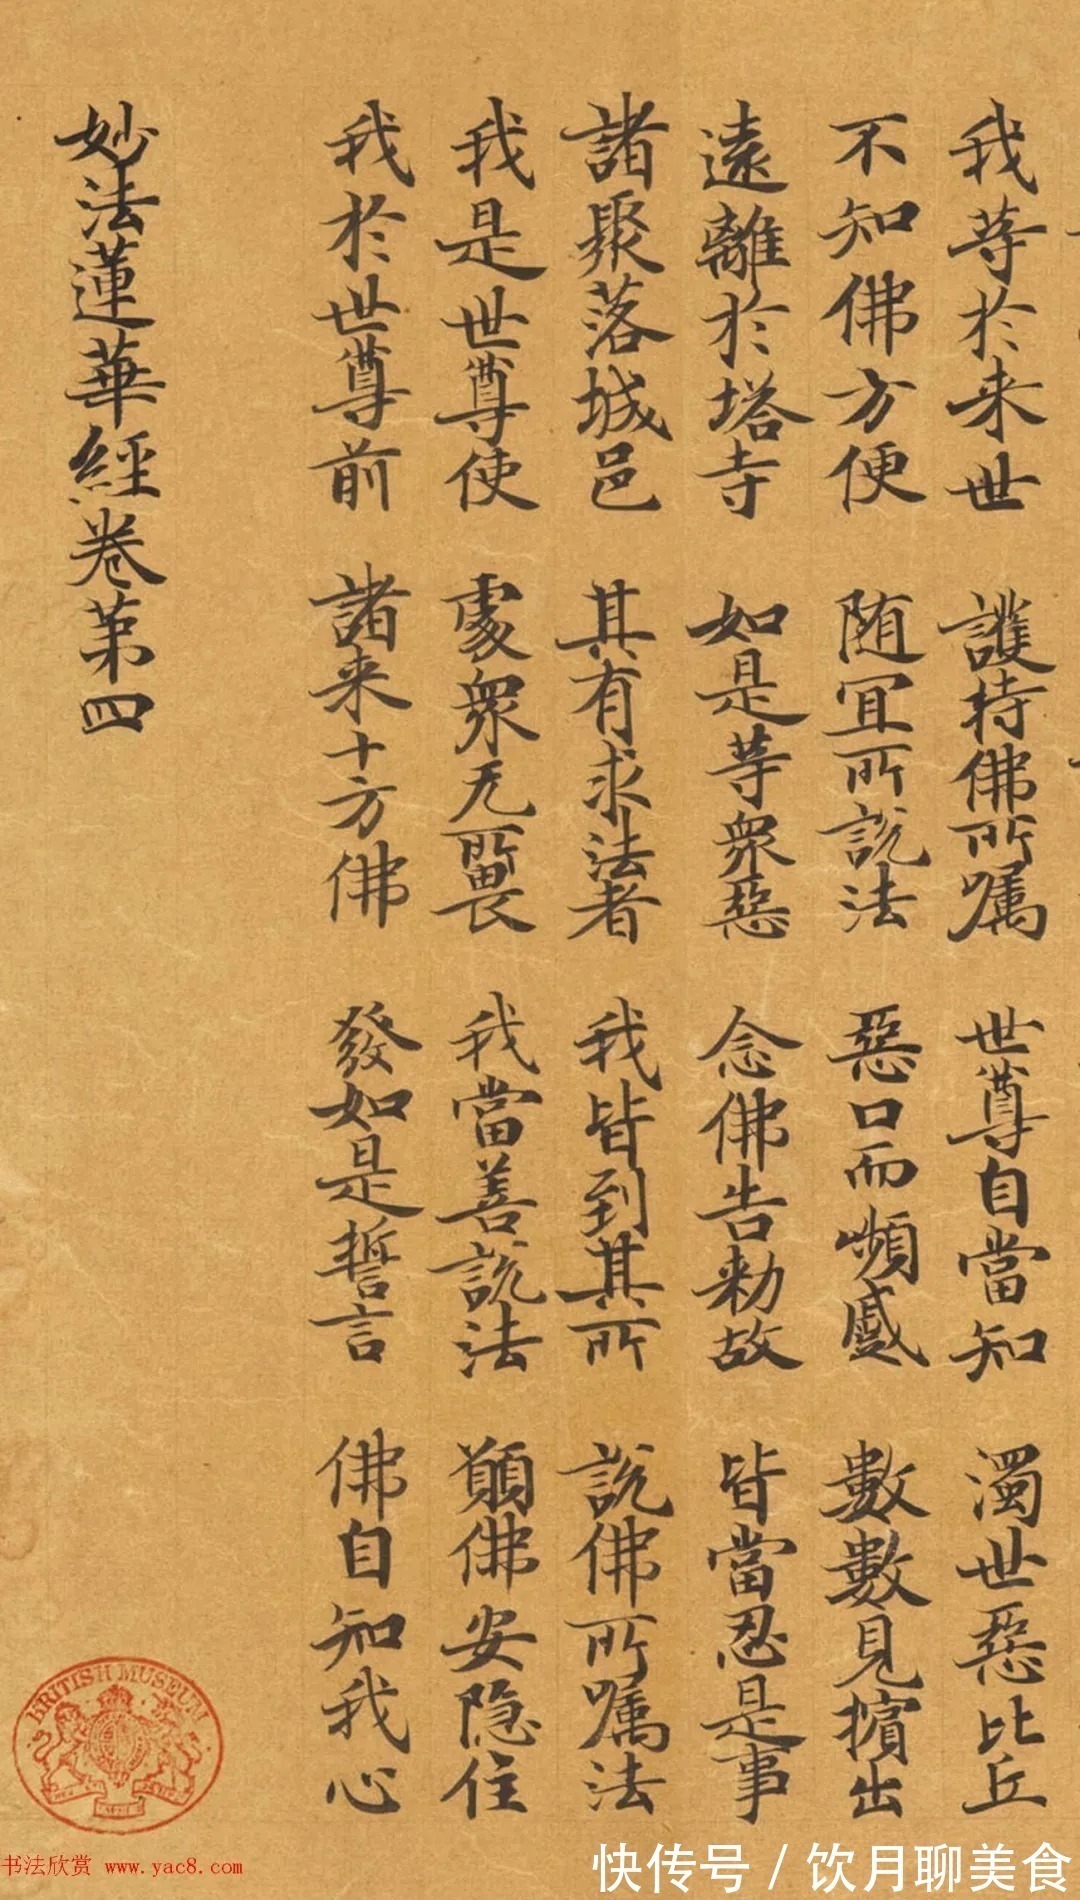 我等於来世　護持佛所嘱　世尊自當知　濁世惡比丘
不知佛方便　随冝所說法　惡口而嚬蹙　數數見擯出
遠離於塔寺　如是等衆惡　念佛告勅故　皆當忍是事
諸聚落城邑　其有求法者　我皆到其所　說佛所嘱法
我是世尊使　處衆无所畏　我當善說法　願佛安隐住
我於世尊前　諸来十方佛　發如是誓言　佛自知我心
妙法蓮華經卷第四
BRITISH MUSEUM
书法欣赏 www.yac8.com
快传号 / 饮月聊美食